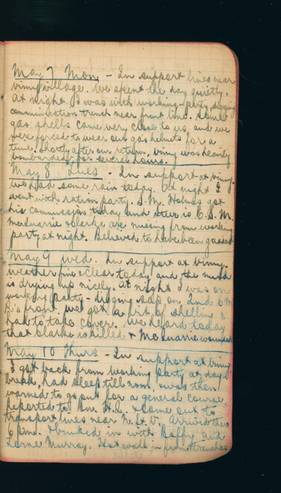 May 7 Mon - In support lines near
Vimy village. We spent the day quietly.
At night I was with working party digging
communication trench near front line. Some
gas shells came very close to us and we
were forced to wear our gas helmets for a
time. Shortly after our return, Vimy was heavily
bombarded for several hours.
May 8 Tues - In support at Vimy.
We had some rain today. At night I
went with ration party. S.M. Holmes got
his commission today and
are missing from working
party at night. Believed to have been gassed
May 9 Wed. In support at Vimy.
Weather fine & clear today and the mud
is drying up nicely. At night I was on
working party - digging sap on 2nd C.M.
R's front. We got a bit of shelling &
had to take cover. We heard today
that Clarke is killed & McQuarrie wounded
May 10 Thurs - In support at Vimy
I got back from working party at day
break, had sleep till noon. Was then
warned to go out for a general course
reported to Bn. H.Q. & came out to
transport lines near Arrived there
6 p.m. & bunked in with Duffy and
Lorne Murray.